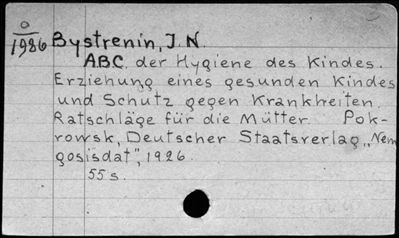 0
1986 Bystrenin, J. N.
ABC der Hygiene des Kindes.
Erziehung eines gesunden Kindes
und Schutz gegen Krankheiten.
Ratschläge für die Mütter. Pok-
rowsk, Deutscher Staatsverlag „Nem
gosisdat", 1926.
55 s.